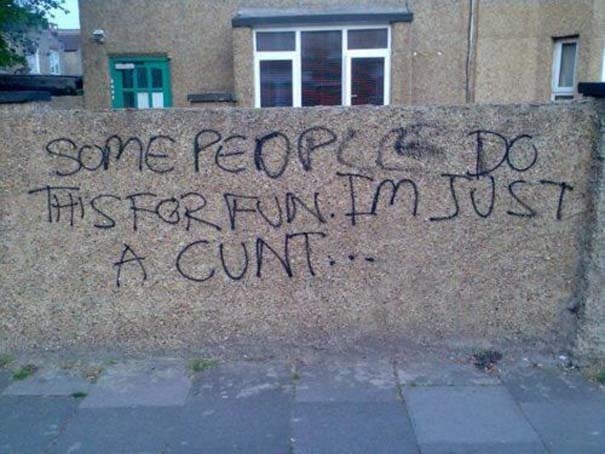 SOME PEOPLE DO
THIS FOR FUN. I'M JUST
A CUNT...